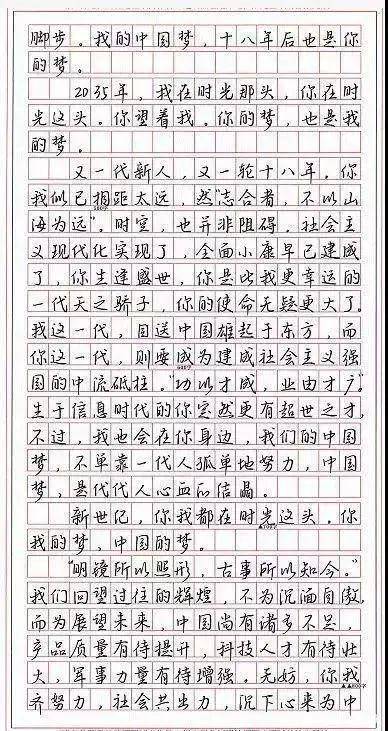 脚步。我的中国梦，十八年后也是你
的梦。
2035年，我在时光那头，你在时
光这头。你望着我。你的梦，也是我
的梦。
又一代新人，又一轮十八年。你
我似已相距太远，然“志合者，不以山
海为远”。时空，也并非阻碍。社会主
义现代化实现了，全面小康早已建成
了，你生逢盛世，你是比我更幸运的
一代天之骄子，你的使命无疑更大了。
我这一代，目送中国雄起于东方，而
你这一代，则要成为建成社会主义强
国的中流砥柱。“功以才成，业由才广。”
生于信息时代的你定然更有超世之才，
不过，我也会在你身边，我们的中国
梦，不单靠一代人孤单地努力，中国
梦，是代代人心血的结晶。
新世纪，你我都在时光这头。你
我的梦，中国的梦。
“明镜所以照形，古事所以知今。”
我们回望过往的辉煌，不为沉湎自傲，
而为展望未来，中国尚有诸多不足，
产品质量有待提升，科技人才有待壮
大，军事力量有待增强。无妨，你我
▲800字
齐努力，社会共出力，沉下心来为中